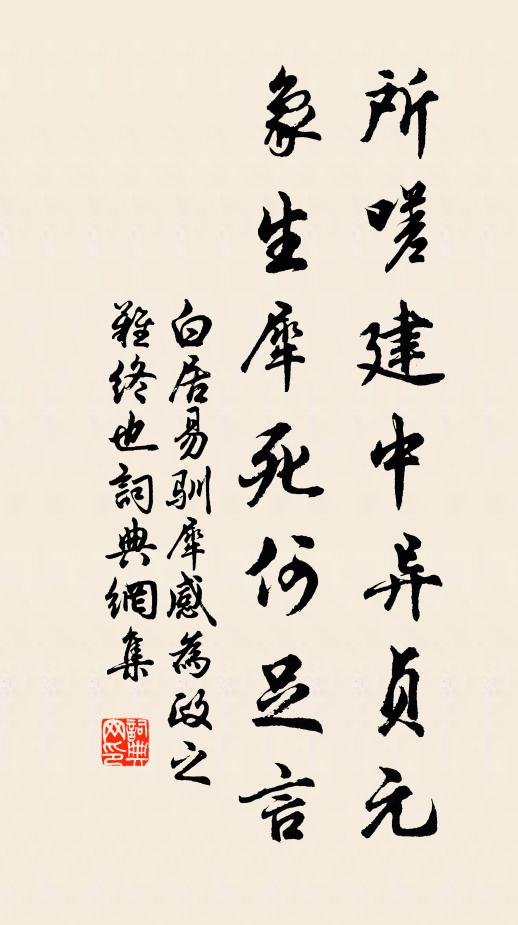 所嗟建中异贞元
象生犀死何足言
白居易驯犀感為政之
難终也詞典網集
詞典網印